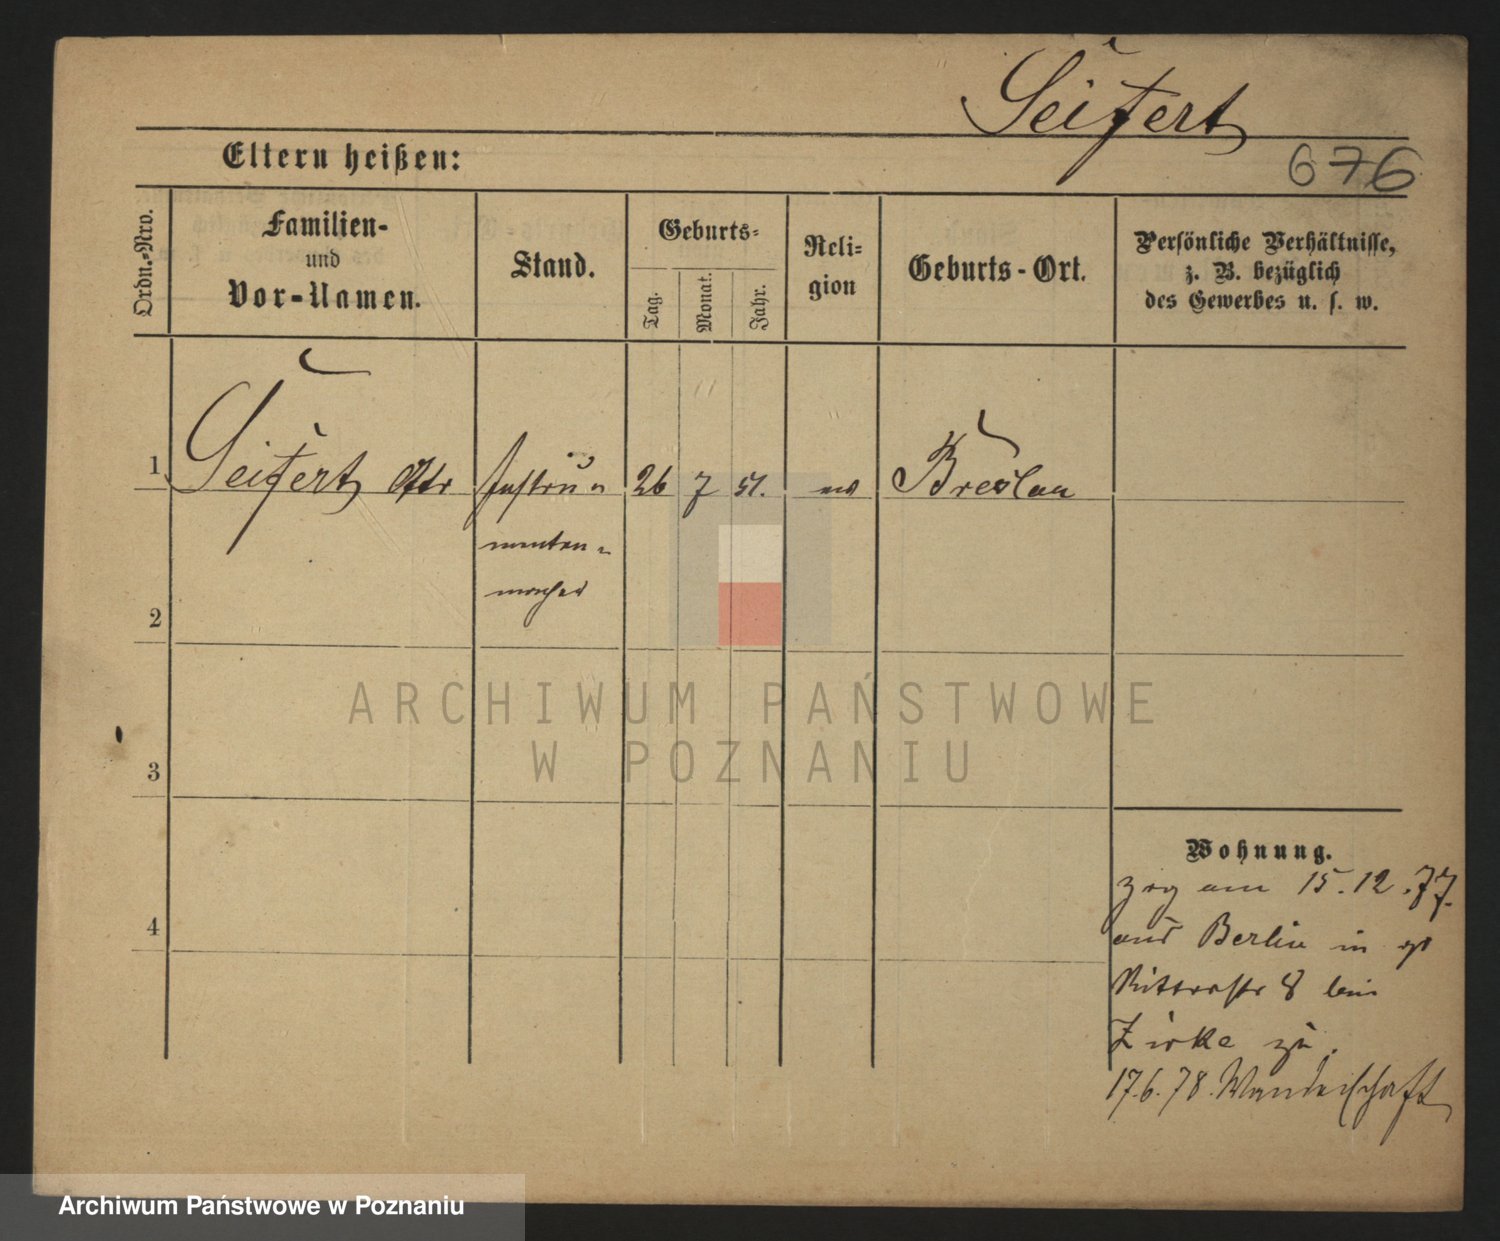 Seifert
676
Eltern heißen:
Ordn.-Nro.
Familien-
und
Vor-Namen.
Stand.
Geburts-
Tag.
Monat.
Jahr.
Reli-
gion
Geburts-Ort.
Persönliche Verhältnisse,
z. B. bezüglich
des Gewerbes u. s. w.
1 Seifert Otto Instru- 26 7 51. ev Breslau
menten-
macher
2
3
4
Wohnung.
zog am 15.12.77.
aus Berlin in
Ritterstr 8 bei
Zirke zu.
17.6.78. Wanderschaft
ARCHIWUM PAŃSTWOWE
W POZNANIU
Archiwum Państwowe w Poznaniu